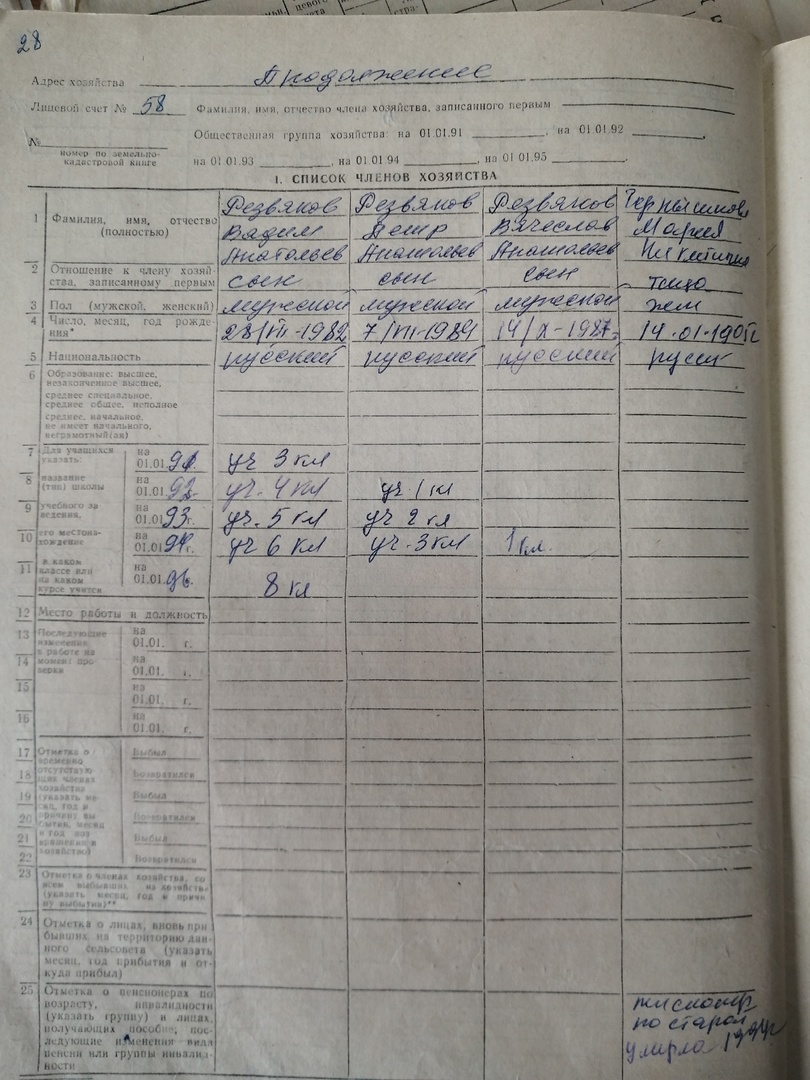 28
Адрес хозяйства Продолжение
Лицевой счет № 58 Фамилия, имя, отчество члена хозяйства, записанного первым
Общественная группа хозяйства: на 01.01.91, на 01.01.92
№
номер по земельно-
кадастровой книге
на 01.01.93, на 01.01.94, на 01.01.95
I. СПИСОК ЧЛЕНОВ ХОЗЯЙСТВА
1 Фамилия, имя, отчество (полностью)
Резвяков Вадим Анатольев
Резвяков Петр Анатольев
Резвяков Вячеслав Анатольев
Мария
2 Отношение к члену хозяй-
ства, записанному первым
сын сын сын теща
3 Пол (мужской, женский) мужской мужской мужской жен
4 Число, месяц, год рожде-
ния*
28/III-1982 7/III-1984 14/X-1987г 14.01-1905г
5 Национальность русский русский русский русск
6 Образование: высшее,
незаконченное высшее,
среднее специальное,
среднее общее, неполное
среднее, начальное,
не имеет начального,
неграмотный(ая)
7 Для учащихся
указать:
на 01.01.91. уч 3 кл
8 название
(тип) школы
на 01.01.92г. уч. 4 кл уч 1 кл
9 учебного за
ведения,
на 01.01.93г. уч. 5 кл уч 2 кл
10 его местона-
хождение
на 01.01.94г. уч 6 кл уч. 3 кл 1 кл.
11 в каком
классе или
на каком
курсе учится
на 01.01.96. 8 кл
12 Место работы и должность
13 Последующие
изменения
в работе на
момент про
верки
на 01.01. г.
14 на 01.01. г.
15 на 01.01. г.
16 на 01.01. г.
17 Отметка о
временно
отсутствую-
щих членах
хозяйства
(указать ме-
сяц, год и
причину вы
бытия, месяц
и год воз
вращения в
хозяйство)
Выбыл
18 Возвратился
19 Выбыл
20 Возвратился
21 Выбыл
22 Возвратился
23 Отметка о членах хозяйства, со
всем выбывших из хозяйства
(указать месяц, год и причи
ну выбытия)**
24 Отметка о лицах, вновь при
бывших на территорию дан-
ного сельсовета (указать
месяц, год прибытия и от-
куда прибыл)
25 Отметка о пенсионерах по
возрасту, инвалидности
(указать группу) и лицах,
получающих пособие, пос-
ледующие изменения вида
пенсии или группы инвалид-
ности
по старо
умерла 1994г